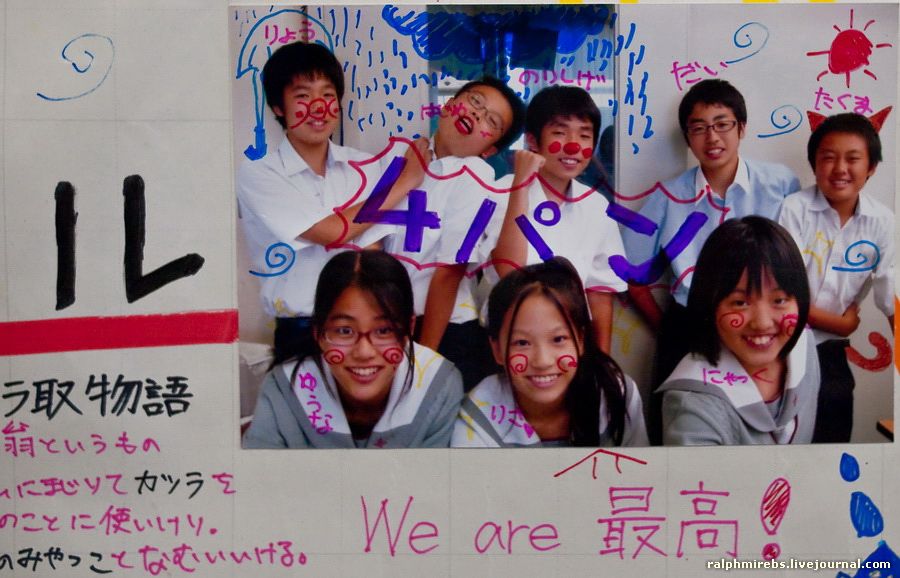 りょう
はじめ
のりしげ
だい
たくま
4パン
ル
ゆうな
りさ
にゃっく
ラ取物語
翁というもの
にまじりてカツラを
のことに使いけり。
のみやつことなむいいける。
We are 最高!
ralphmirebs.livejournal.com